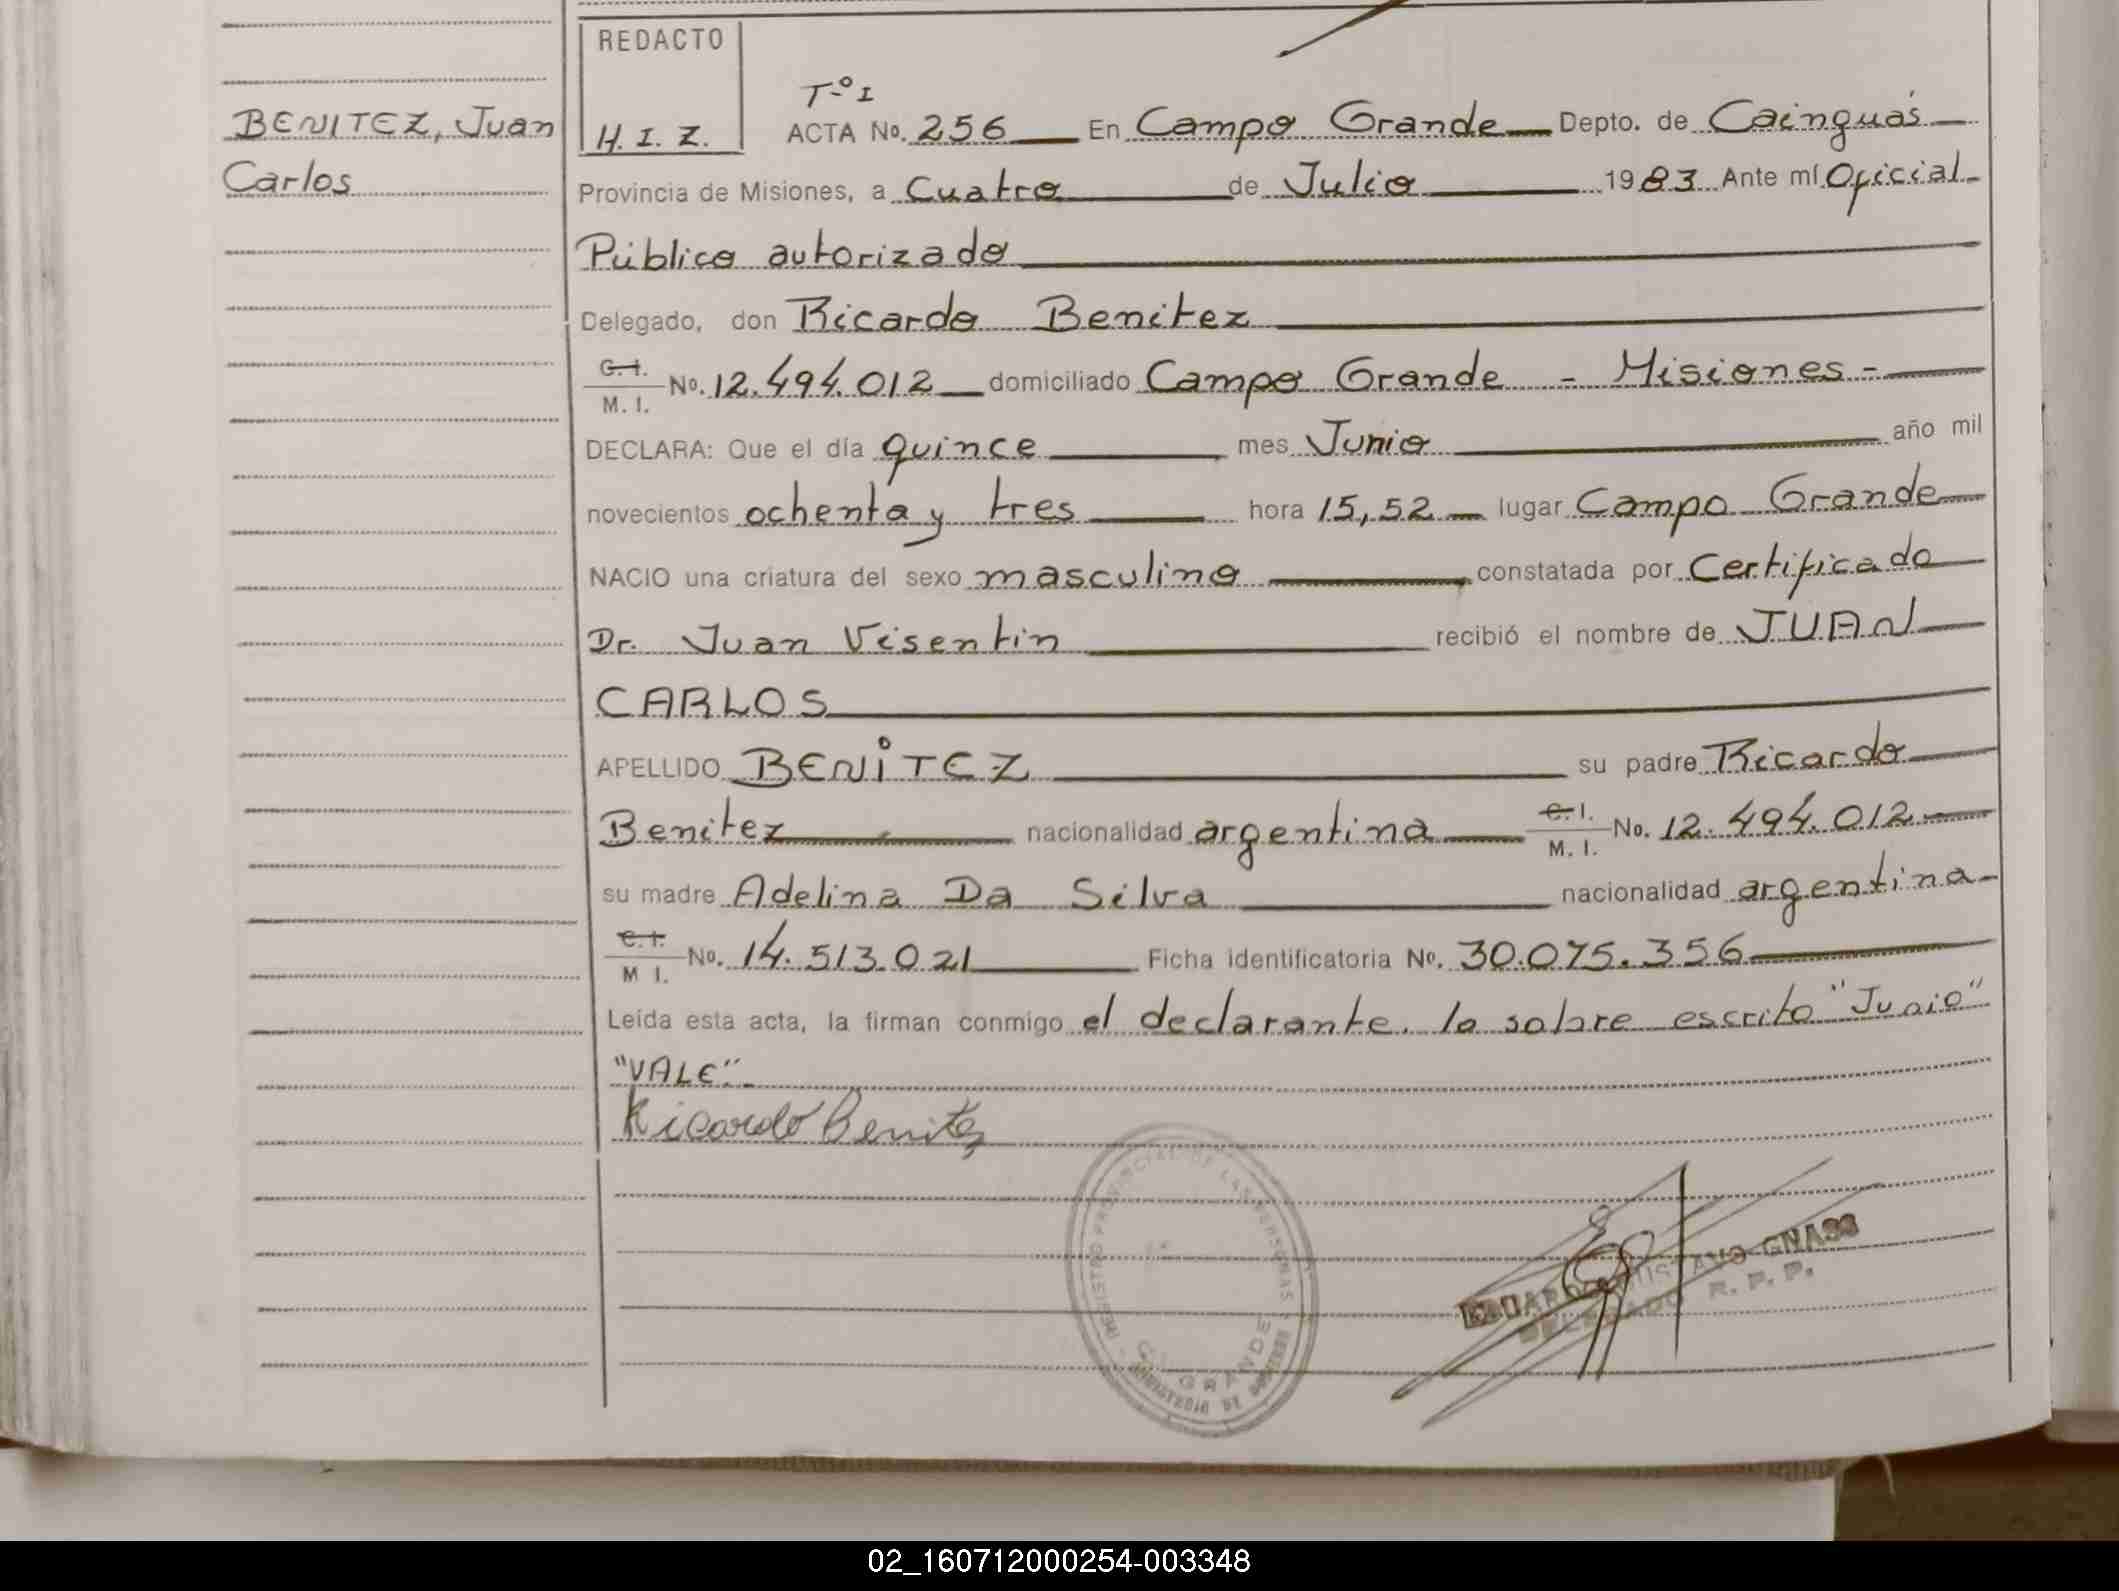 REDACTO
H. I. Z.
T-º I
BENITEZ, Juan
Carlos
ACTA No. 256 En Campo Grande Depto. de Cainguás
Provincia de Misiones, a Cuatro de Julio 1983 Ante mí Oficial
Público autorizado
Delegado, don Ricardo Benitez
C. I.
M. I.
No. 12.494.012 domiciliado Campo Grande - Misiones -
DECLARA: Que el día quince mes Junio año mil
novecientos ochenta y tres hora 15,52 lugar Campo Grande
NACIO una criatura del sexo masculino constatada por Certificado
Dr. Juan Visentin recibió el nombre de JUAN
CARLOS
APELLIDO BENITEZ su padre Ricardo
Benitez nacionalidad argentina C. I. M. I. No. 12.494.012
su madre Adelina Da Silva nacionalidad argentina
C. I.
M I.
No. 14.513.021 Ficha identificatoria No. 30.075.356
Leída esta acta, la firman conmigo el declarante. lo sobre escrito "Junio"
"VALE".
Ricardo Benitez
REGISTRO PROVINCIAL DE LAS PERSONAS
GRANDE
EDUARDO GUSTAVO GNASS
DELEGADO R. P. P.
02_160712000254-003348